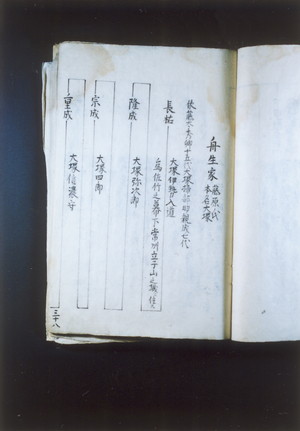 舟生家 藤原氏
本名大塚
藤原秀郷十五代大塚
七代
長祐 大塚伊勢入道
為佐竹之幕下常州立子山之城住ス
隆成 大塚弥次郎
宗成 大塚四郎
重成 大塚信濃守
三十八